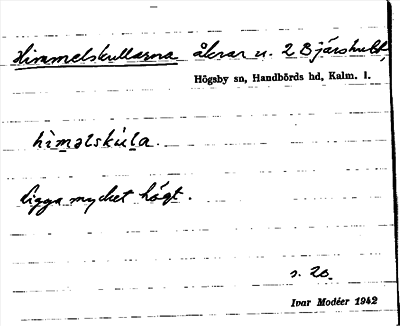 Himmelskullarna åkrar u. 2 Bjärshult,
Högsby sn, Handbörds hd, Kalm. l.
hìməlskúla.
ligga mycket högt.
s. 20.
Ivar Modéer 1942